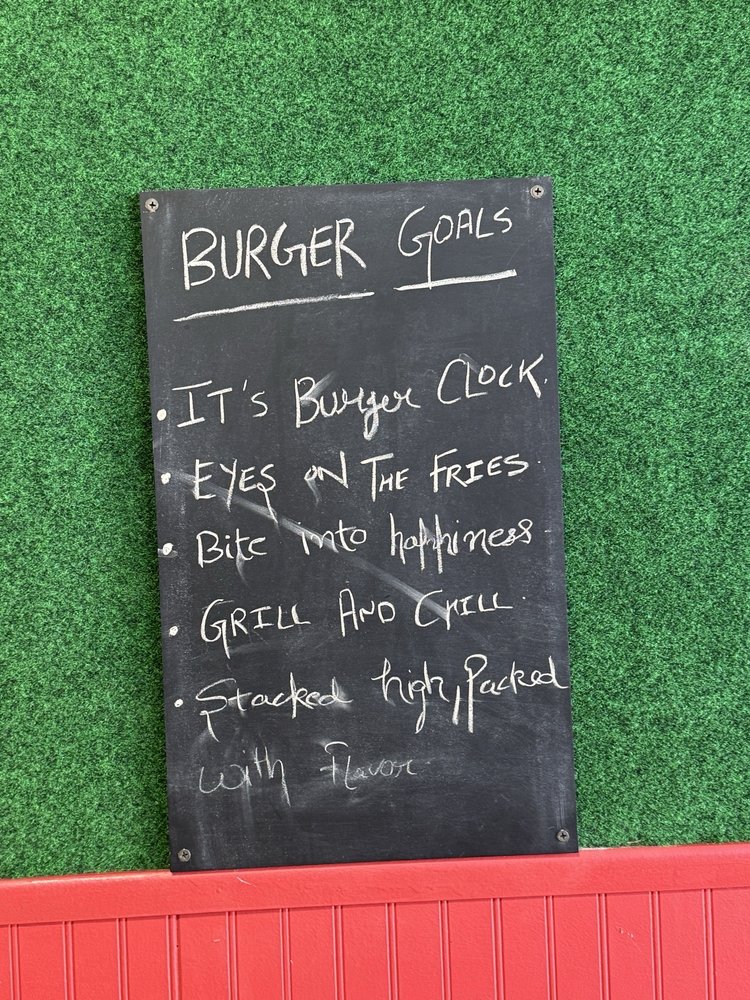 BURGER GOALS
• IT'S Burger CLOCK.
• EYES ON THE FRIES
• Bite into happiness
• GRILL AND CHILL
• Stacked high, Packed
with Flavor